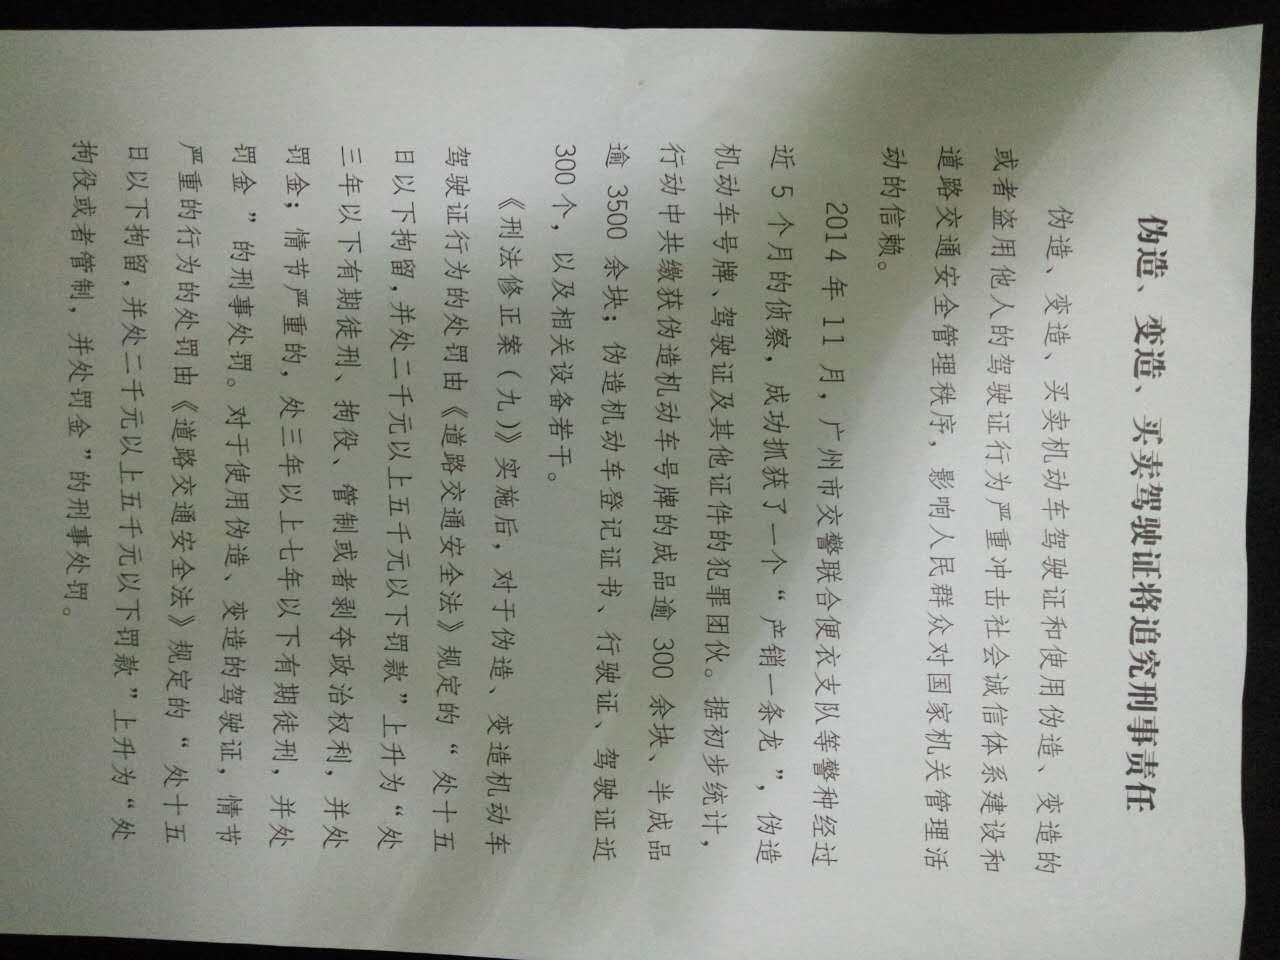 伪造、变造、买卖驾驶证将追究刑事责任
伪造、变造、买卖机动车驾驶证和使用伪造、变造的
或者盗用他人的驾驶证行为严重冲击社会诚信体系建设和
道路交通安全管理秩序，影响人民群众对国家机关管理活
动的信赖。
2014 年 11 月，广州市交警联合便衣支队等警种经过
近 5 个月的侦察，成功抓获了一个“产销一条龙”，伪造
机动车号牌、驾驶证及其他证件的犯罪团伙。据初步统计，
行动中共缴获伪造机动车号牌的成品逾 300 余块、半成品
逾 3500 余块；伪造机动车登记证书、行驶证、驾驶证近
300 个，以及相关设备若干。
《刑法修正案（九）》实施后，对于伪造、变造机动车
驾驶证行为的处罚由《道路交通安全法》规定的“处十五
日以下拘留，并处二千元以上五千元以下罚款”上升为“处
三年以下有期徒刑、拘役、管制或者剥夺政治权利，并处
罚金；情节严重的，处三年以上七年以下有期徒刑，并处
罚金”的刑事处罚。对于使用伪造、变造的驾驶证，情节
严重的行为的处罚由《道路交通安全法》规定的“处十五
日以下拘留，并处二千元以上五千元以下罚款”上升为“处
拘役或者管制，并处罚金”的刑事处罚。